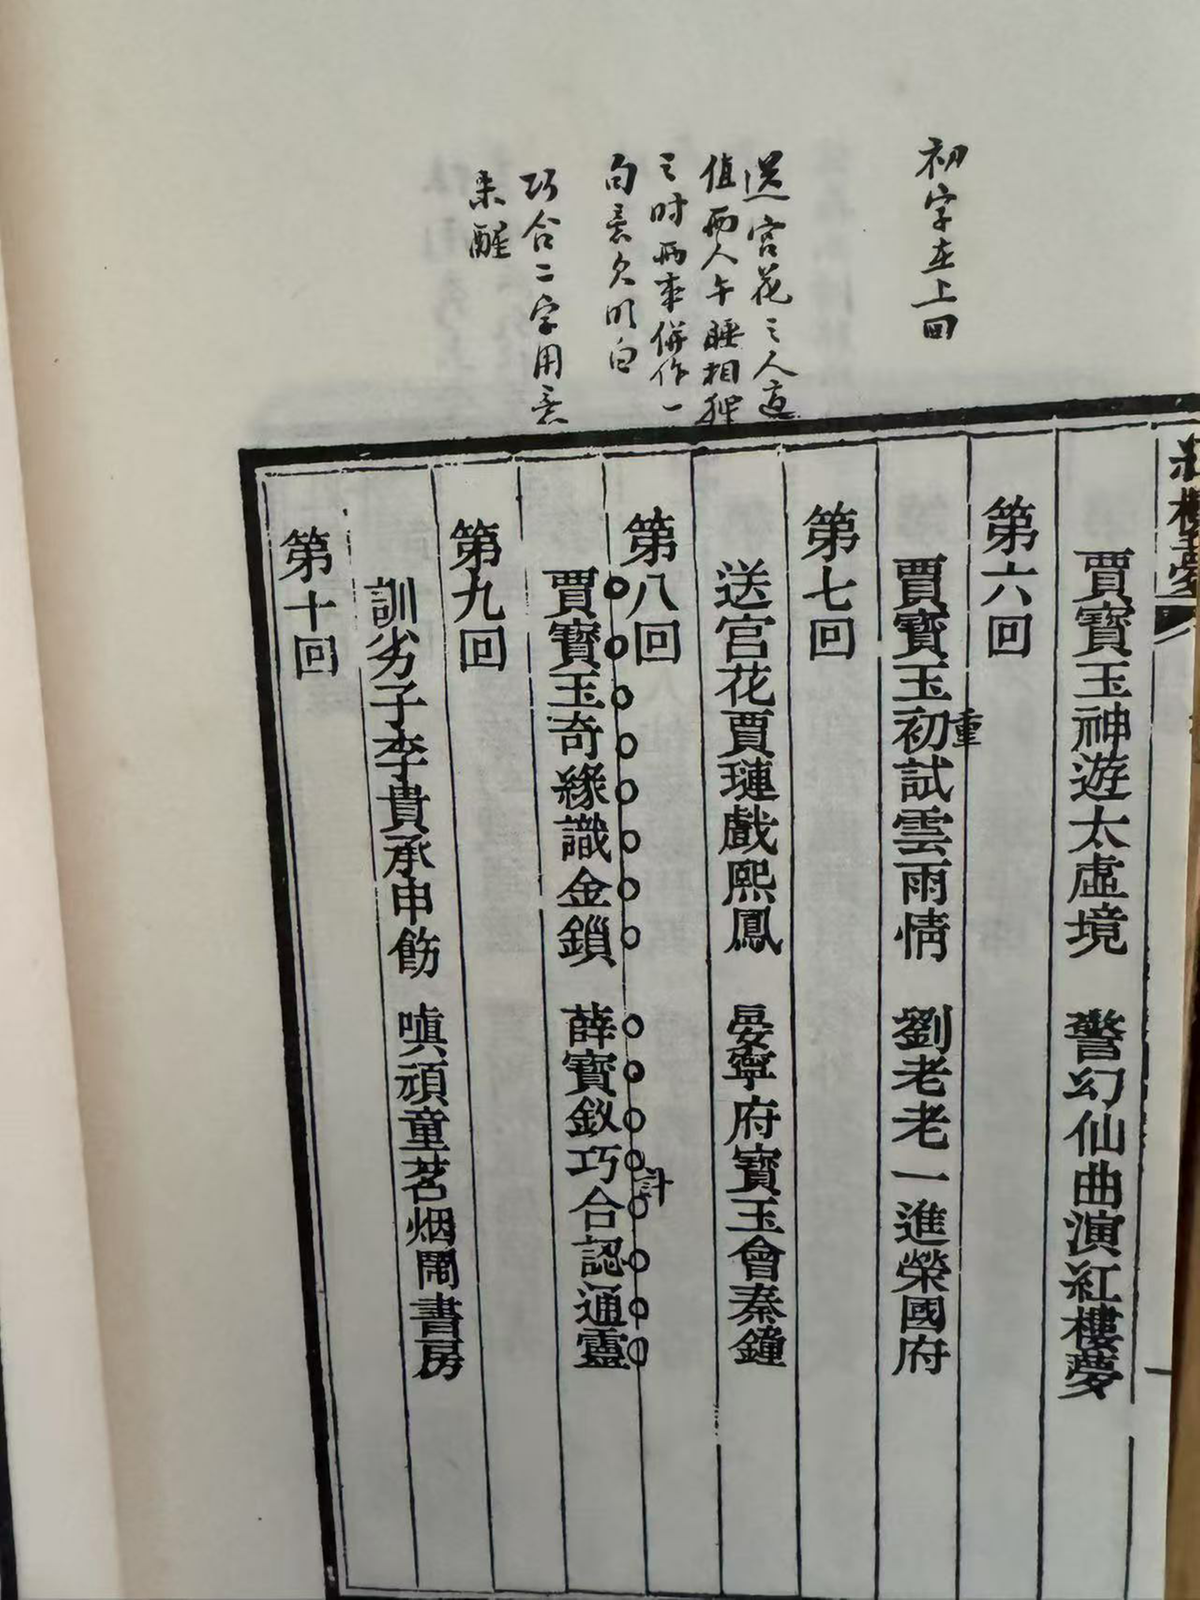 初字在上回
送宮花之人適
值兩人午睡相狎
之時兩事併作一
句意欠明白
巧合二字用意
未醒
紅樓夢
賈寶玉神遊太虛境 警幻仙曲演紅樓夢
第六回
賈寶玉初試雲雨情 劉老老一進榮國府
重
第七回
送宮花賈璉戲熙鳳 晏寧府寶玉會秦鐘
第八回
賈寶玉奇緣識金鎖 薛寶釵巧合認通靈
計
第九回
訓劣子李貴承申飭 嗔頑童茗烟鬧書房
第十回